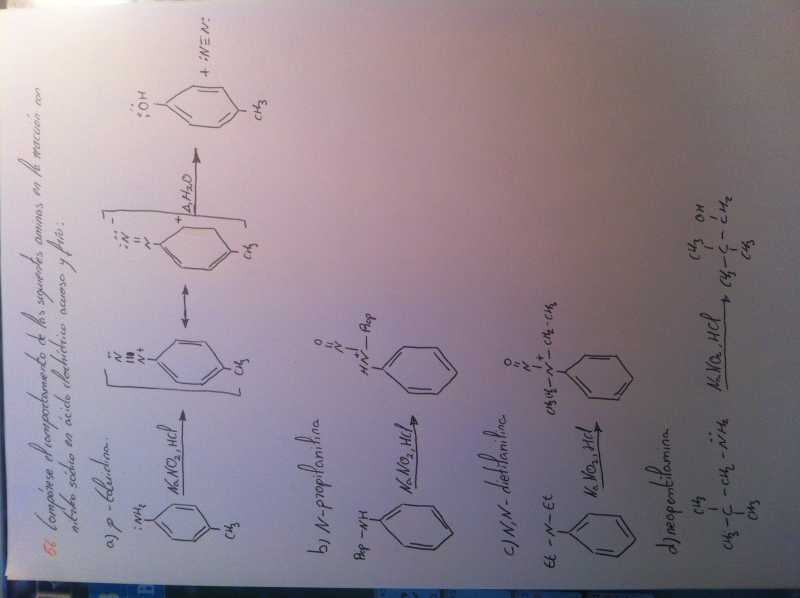 56 Compárese el comportamiento de las siguientes aminas en la reacción con
nitrito sódico en ácido clorhídrico acuoso y frío:
a) p-toluidina.
:NH2
CH3
NaNO2, HCl
N
N+
CH3
:N
N
+
-
CH3
Δ, H2O
:OH
CH3
+ :N≡N:
b) N-propilanilina
Prop-NH
NaNO2, HCl
O
N
HN+-Prop
c) N,N-dietilanilina
Et-N-Et
NaNO2, HCl
O
N
CH3CH2-N+-CH2-CH3
d) neopentilamina
CH3
CH3-C-CH2-NH2
CH3
NaNO2, HCl
CH3 OH
CH3-C-CH2
CH3